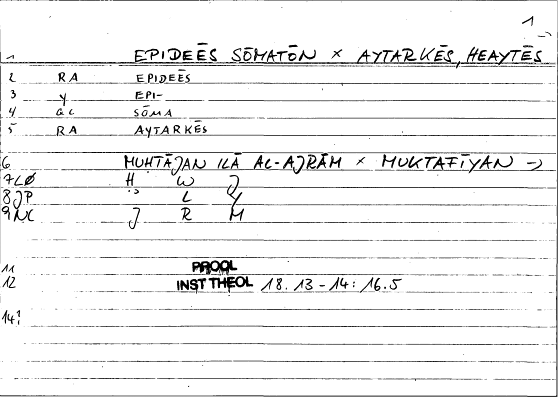 1 →
1 EPIDEĒS SŌMATŌN × AYTARKĒS, HEAYTĒS
2 RA EPIDEĒS
3 Y EPI-
4 GC SŌMA
5 RA AYTARKĒS
6 MUHTĀJAN ILĀ AL-AJRĀM × MUKTAFĪYAN →
7 LØ H W J
8 JP L Y
9 NC J R M
11 PROCL
12 INST THEOL 18.13-14: 16.5
14!